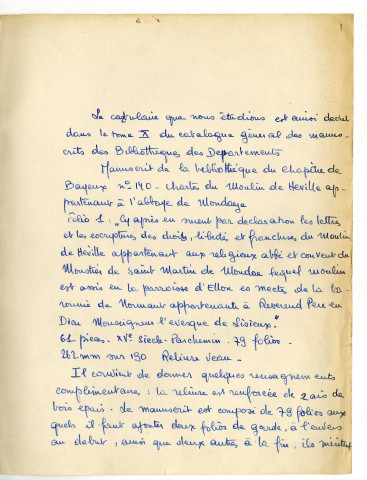 1
Le cartulaire que nous étudions est ainsi decrit
dans le tome X du catalogue général des manus-
crits des Bibliothèques des Departements
Manuscrit de la bibliothèque du Chapitre de
Bayeux nº 140 - Chartes du Moulin de Héville ap-
partenant à l'abbaye de Mondaye
Folio 1: "Cy après en suient par declaration les lettres
et les escriptures des droits, liberté et franchises du Moulin
de Héville appartenant aux religieux abbé et convent du
Moustier de Saint Martin de Mondae lequel moulin
est assis en la parroisse d'Ellon es mectes de la ba-
ronnie de Nonnant appartenante à Reverend Pere en
Dieu Monseigneur l'evesque de Lisieux."
61 pieces - XVe siecle - Parchemin - 79 folios.
262 mm sur 190 Reliure veau -
Il convient de donner quelques renseignements
complémentaires: la reliure est renforcée de 2 ais de
bois epais. Le manuscrit est composé de 79 folios aux
quels il faut ajouter deux folios de garde, à l'envers
au debut, ainsi que deux autres à la fin; ils méritent